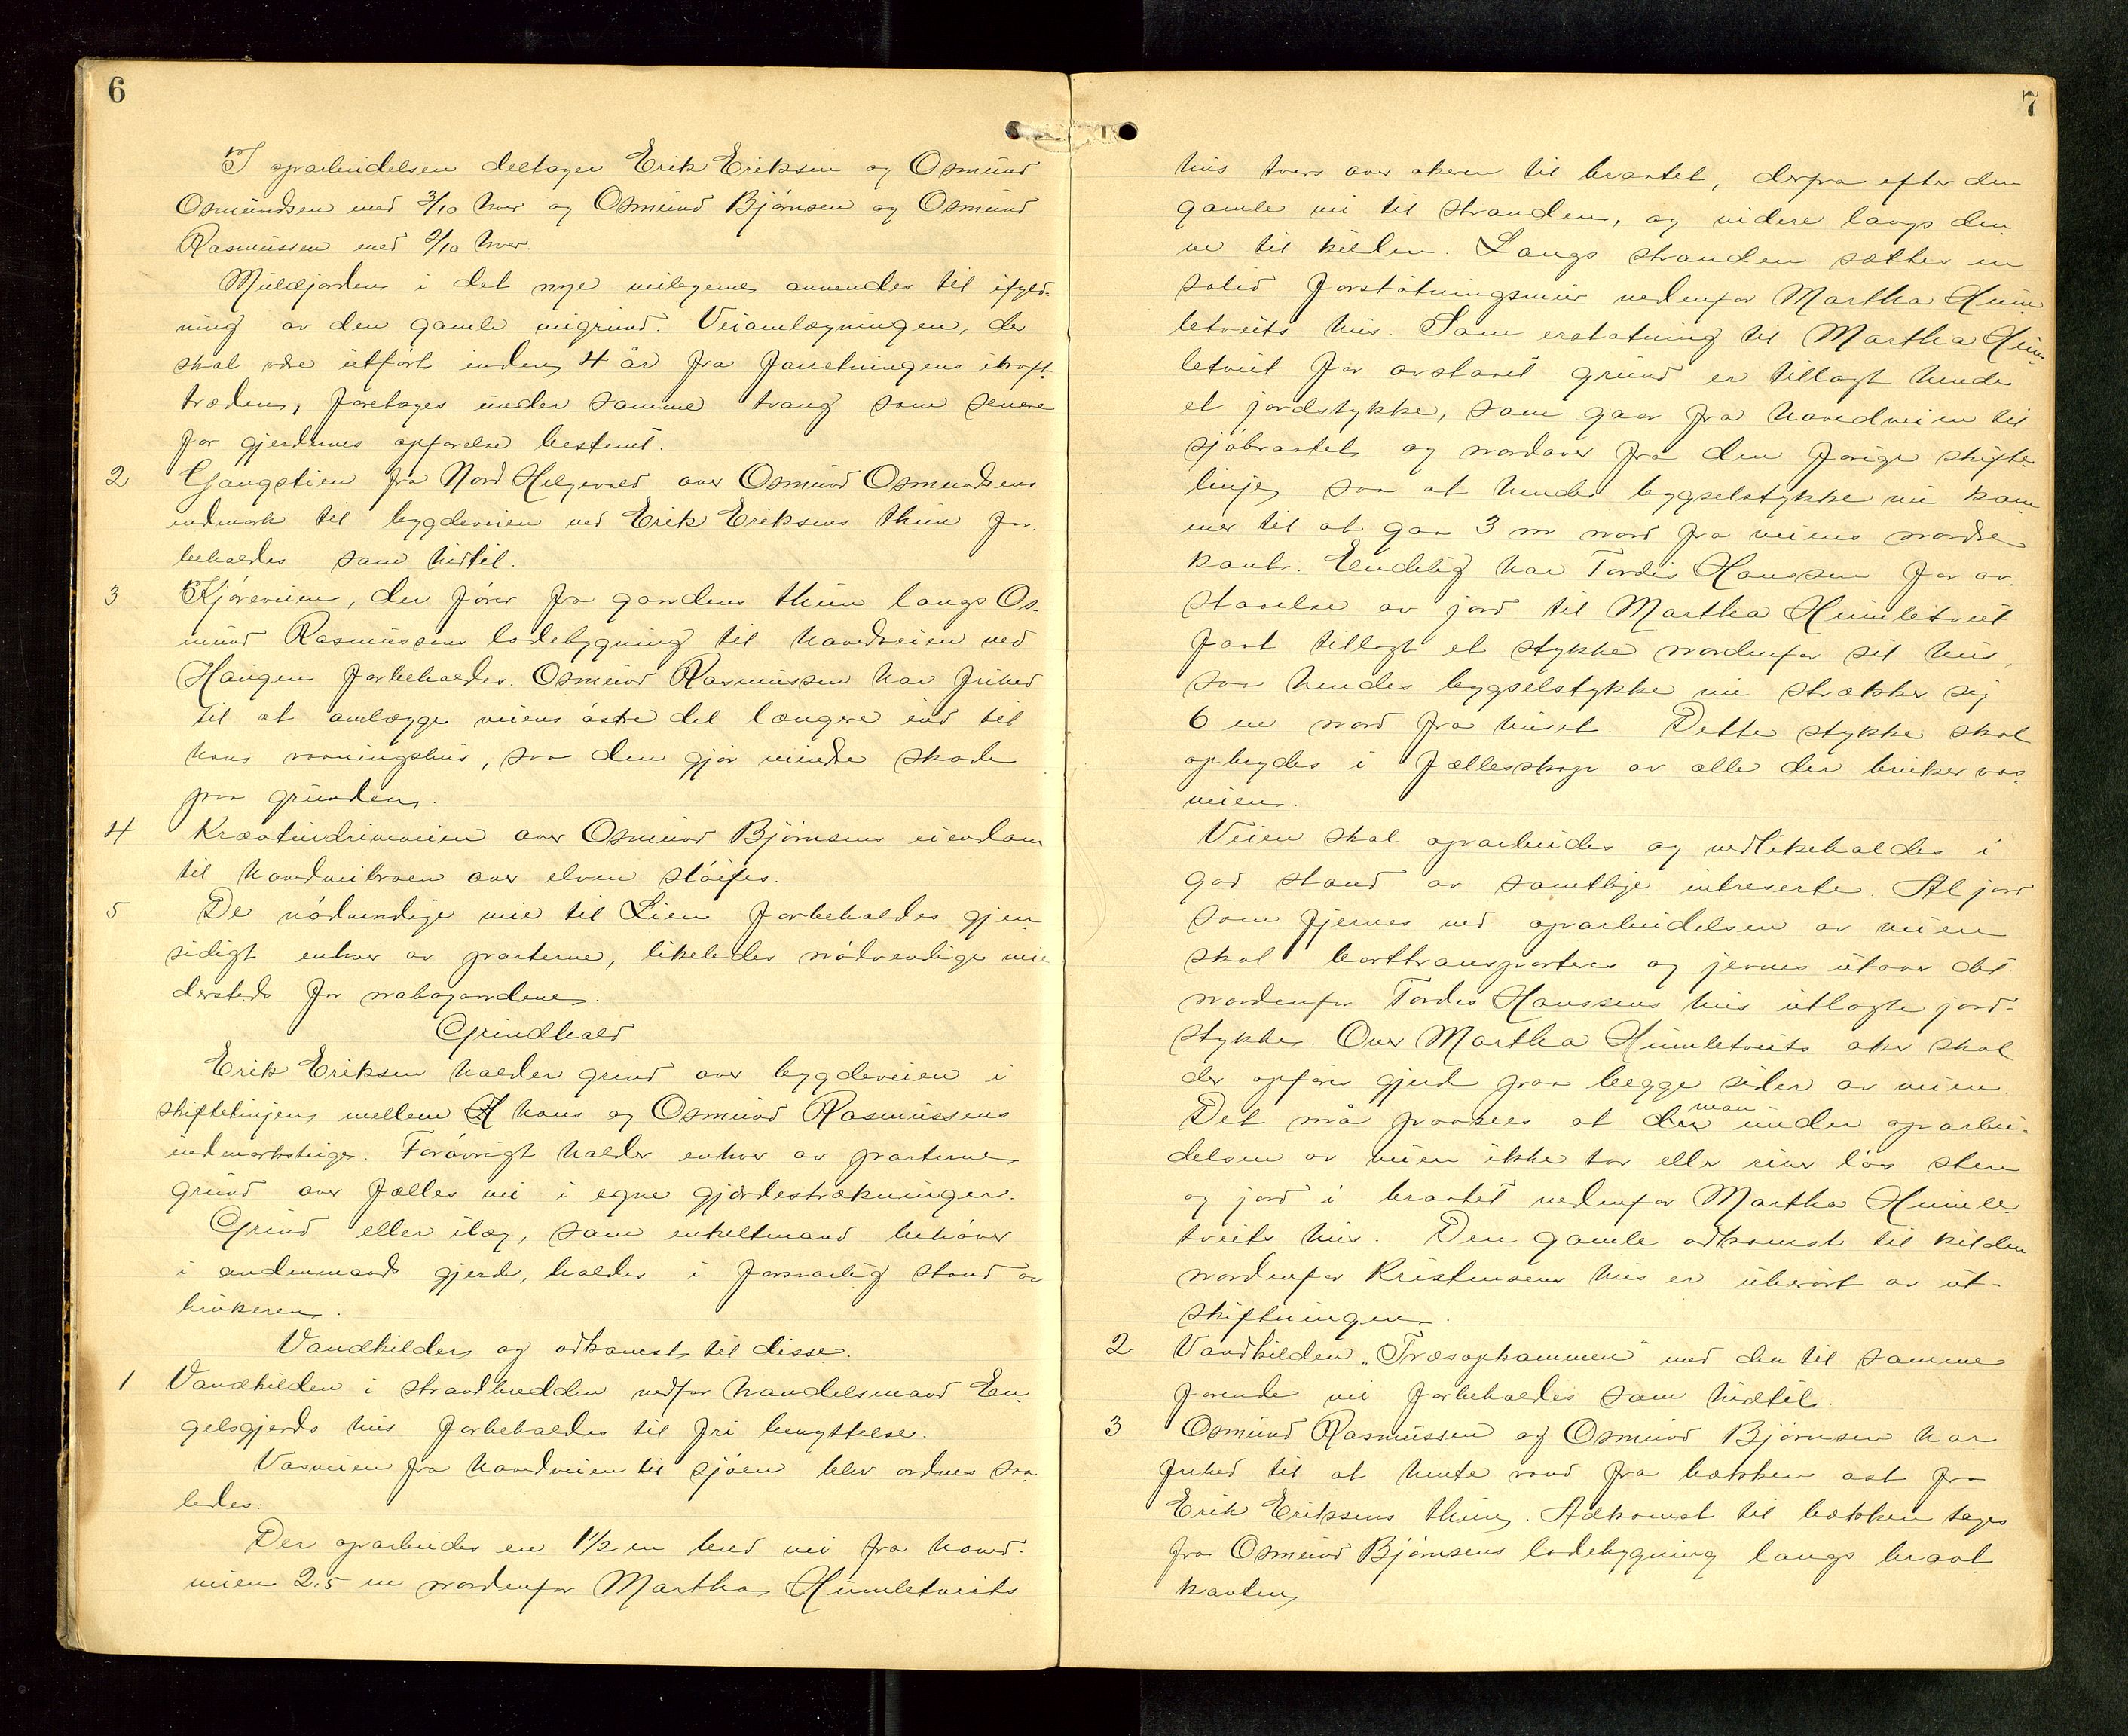 6
I oparbeidelsen deltager Erik Eriksen og Osmund
Osmundsen med 3/10 hver og Osmund Bjørnsen og Osmund
Rasmussen med 2/10 hver.
Muldjorden i det nye veilegeme anvendes til ifyld-
ning av den gamle veigrund. Veiomlægningen, der
skal være utført inden 4 år fra forretningens ikraft-
træden, foretages under samme tvang som senere
for gjerdernes opførelse bestemt.
2 Gangstien fra Nord Helgevold over Osmund Osmundsens
indmark til bygdeveien ved Erik Eriksens thun for-
beholdes som hidtil.
3 Kjøreveien, der fører fra gaardens thun langs Os-
mund Rasmussens ladebygning til hovedveien ved
Haugen forbeholdes. Osmund Rasmussen har frihed
til at omlægge veiens østre del længere ind til
hans vaaningshus, saa den gjør mindre skade
paa grunden.
4 Kreaturdriveveien over Osmund Bjørnsens eiendom
til hovedveibroen over elven sløifes.
5 De nødvendige veie til Lien forbeholdes gjen-
sidigt enhver av parterne, likeledes nødvendige veie
dersteds for nabogaardene.
Grindhald
Erik Eriksen holder grind over bygdeveien i
skiftelinjen mellem hans og Osmund Rasmussens
indmarksteiger. Forøvrigt holder enhver av parterne
grind over fælles vei i egne gjerdestrækninger.
Grind eller ilæg, som enkeltmand behøver
i andenmands gjerde, holdes i forsvarlig stand av
brukeren.
Vandkilder og adkomst til disse.
1 Vandkilden i strandbredden nedfor handelsmand En-
gelsgjerds hus forbeholdes til fri benyttelse.
Vasveien fra hovedveien til sjøen blev ordnet saa-
ledes:
Der oparbeides en 1 1/2 m bred vei fra hoved-
veien 2,5 m nordenfor Martha Humletveits
7
hus tvers over akeren til brautet, derfra efter den
gamle vei til stranden, og videre langs den-
ne til kilden. Langs stranden sættes en
solid forstøtningsmur nedenfor Martha Hum-
letveits hus. Som erstatning til Martha Hum-
letveit for avstaaet grund er tillagt hende
et jordstykke, som gaar fra hovedveien til
sjøbrautet og nordover fra den forige skifte-
linje, saa at hendes bygselstykke nu kom-
mer til at gaa 3 m nord fra veiens nordre
kant. Endelig har Tordis Hanssen for av-
staaelse av jord til Martha Humletveit
faat tillagt et stykke nordenfor sit hus,
saa hendes bygselstykke nu strækker sig
6 m nord fra huset. Dette stykke skal
opbrydes i fællesskap av alle der bruker vas-
veien.
Veien skal oparbeides og vedlikeholdes i
god stand av samtlige intreserte. Al jord
som fjernes ved oparbeidelsen av veien
skal borttransporteres og jevnes utover det
nordenfor Tordis Hanssens hus utlagte jord-
stykke. Over Martha Humletveits aker skal
der opføres gjerde paa begge sider av veien.
Det må paasees at man under oparbei-
delsen av veien ikke tar eller river løs sten
og jord i brautet nedenfor Martha Humle-
tveits hus. Den gamle adkomst til kilden
nordenfor Kristensens hus er uberørt av ut-
skiftningen.
2 Vandkilden „Træsopkommen" med den til samme
førende vei forbeholdes som hidtil.
3 Osmund Rasmussen og Osmund Bjørnsen har
frihed til at hente vand fra bækken øst fra
Erik Eriksens thun. Adkomst til bækken tages
fra Osmund Bjørnsens ladebygning langs braut-
kanten